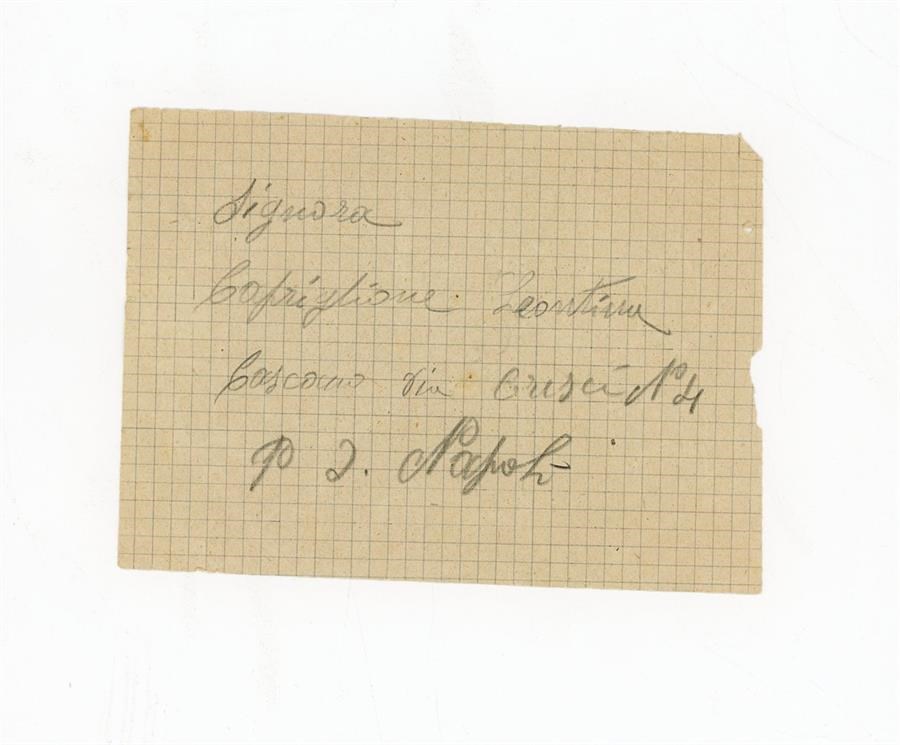 Signora
Capriglione Leontina
Cascano via Crusci N° 4
P d. Napoli